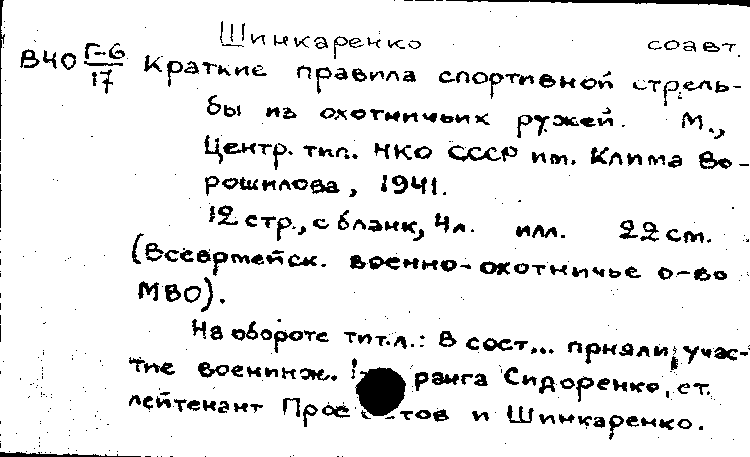 Шинкаренко соавт.
В40 Г-6/17 Краткие правила спортивной стрель-
бы из охотничьих ружей. М.,
Центр. тип. НКО СССР им. Клима Во-
рошилова, 1941.
12 стр., с бланк, 4л. илл. 22 см.
(Всеармейск. военно-охотничье о-во
МВО).
На обороте тит.л.: В сост... приняли учас-
тие воениннж. ранга Сидоренко, ст.
лейтенант и Шинкаренко.